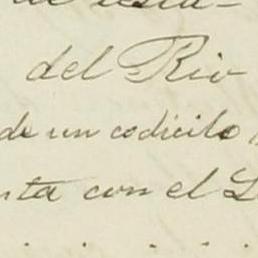 del Rio
de un codicilo
nta con el L